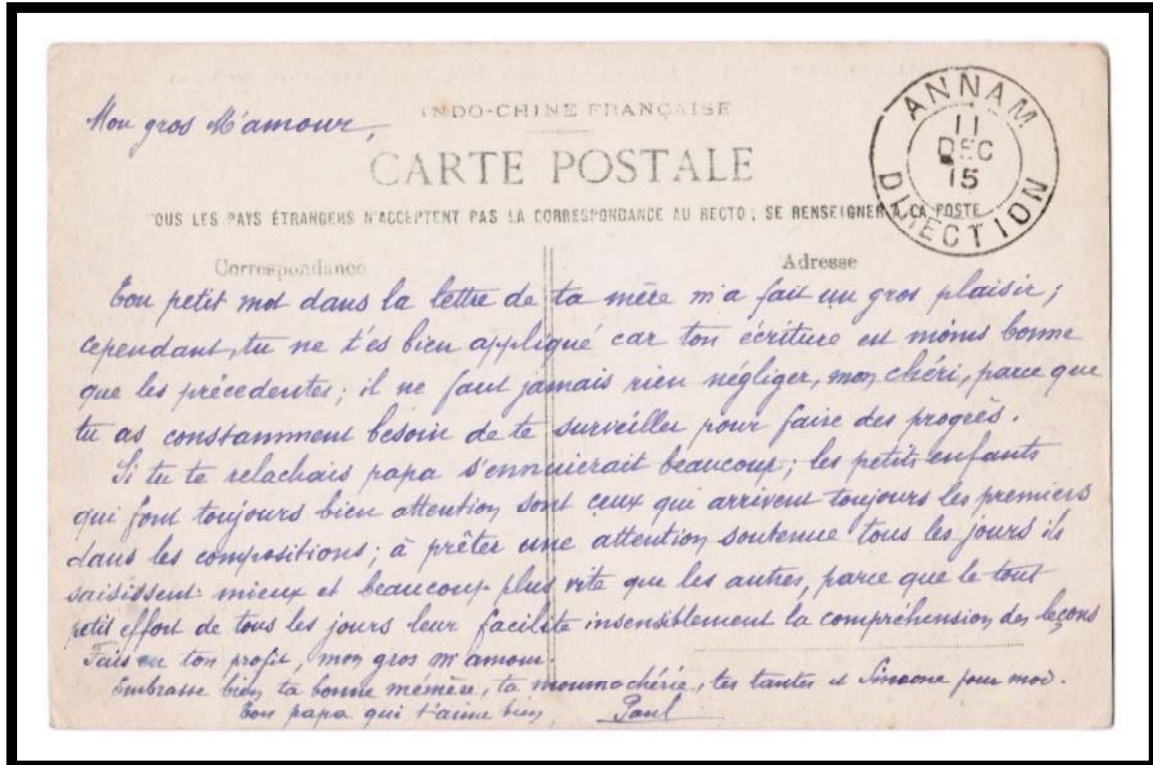 Mon gros M'amour,
INDO-CHINE FRANÇAISE
CARTE POSTALE
TOUS LES PAYS ÉTRANGERS N'ACCEPTENT PAS LA CORRESPONDANCE AU RECTO ; SE RENSEIGNER A LA POSTE
ANNAM
11
DEC
15
DIRECTION
Correspondance
Adresse
Ton petit mot dans la lettre de ta mère m'a fait un gros plaisir ;
cependant, tu ne t'es bien appliqué car ton écriture est moins bonne
que les précedentes ; il ne faut jamais rien négliger, mon chéri, parce que
tu as constamment besoin de te surveiller pour faire des progrès.
Si tu te relachais papa s'ennuierait beaucoup ; les petits enfants
qui font toujours bien attention sont ceux qui arrivent toujours les premiers
dans les compositions ; à prêter une attention soutenue tous les jours ils
saisissent mieux et beaucoup plus vite que les autres, parce que le tout
petit effort de tous les jours leur facilite insensiblement la compréhension des leçons
Fais en ton profit, mon gros m'amour.
Embrasse bien ta bonne mémère, ta moumochérie, tes tantes et Simone pour moi.
Ton papa qui t'aime bien, Paul